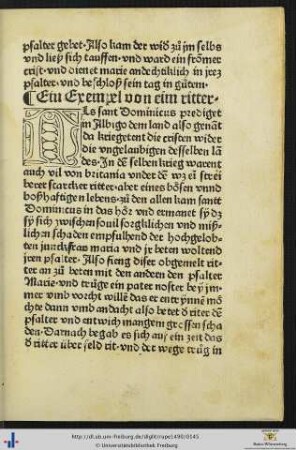 psalter gebet·Also kam der wid̕ zů ym selbs
vnd ließ sich tauffen·vnd ward ein frõmer
crist·vnd dienet marie andechtiklich in irez
psalter·vnd beschloß sein tag in gůtem·
¶Ein Exempel von eim ritter·
ALs sant Dominicus prediget
in Albigo dem land also genãt
da kriegetent die cristen wider
die vngelaubigen desselben lã
des·In dẽ selben krieg warent
auch vil von britania vnder dẽ
starcker ritter·aber eines bõsen vnnd
boßhafftigen lebens·zů den allen kam santt
Dominicus in das hõr vnd ermanet sy dz
sy sich zwischen souil sorgklichen vnd miß-
lichen schaden empfulhend der hochgelob-
ten junckfraw maria vnd je beten woltend
jren psalter·Also fieng diser obgemelt rit-
ter an zů beten mit den anderen den psalter
Marie·vnd trůge ein pater noster bey jm·
mer vmb vorcht willẽ das er entrynnẽ mõ
chte dann vmb andacht also betet d̕ ritter dẽ
psalter vnd entwich mangem grossen scha
den·Darnach begab es sich auf ein zeit das
d̕ ritter über feld rit·vnd der wege trůg in
http://dl.ub.uni-freiburg.de/diglit/rupe1496/0145
© Universitätsbibliothek Freiburg